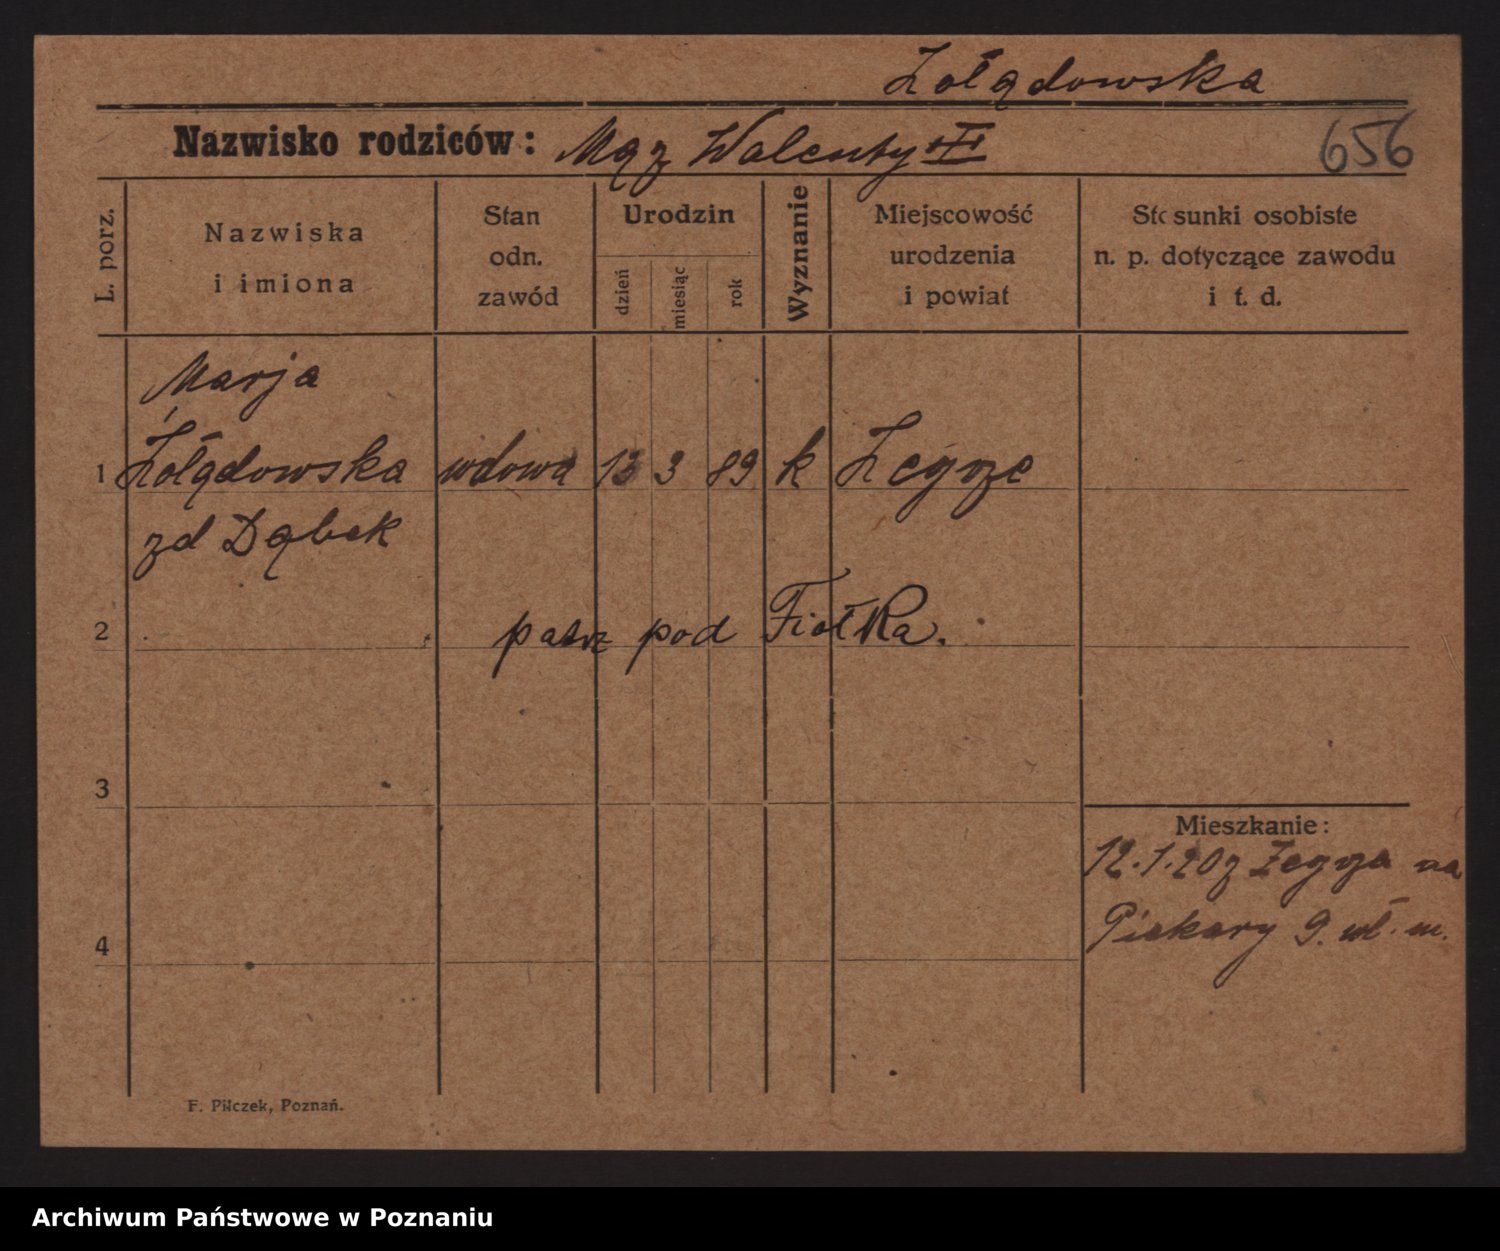 Żołądowska
Nazwisko rodziców: Mąz Walenty
656
L. porz.
Nazwiska
i imiona
Stan
odn.
zawód
Urodzin
dzień
miesiąc
rok
Wyznanie
Miejscowość
urodzenia
i powiat
Stosunki osobiste
n. p. dotyczące zawodu
i t. d.
Marja
1 Żołądowska wdowa 13 3 89 k Zegrze
zd Dąbek
2 patrz pod Fiołka.
3
Mieszkanie:
12.1.20 z Zegrza na
Piekary 9. wł. m.
4
F. Pilczek, Poznań.
Archiwum Państwowe w Poznaniu